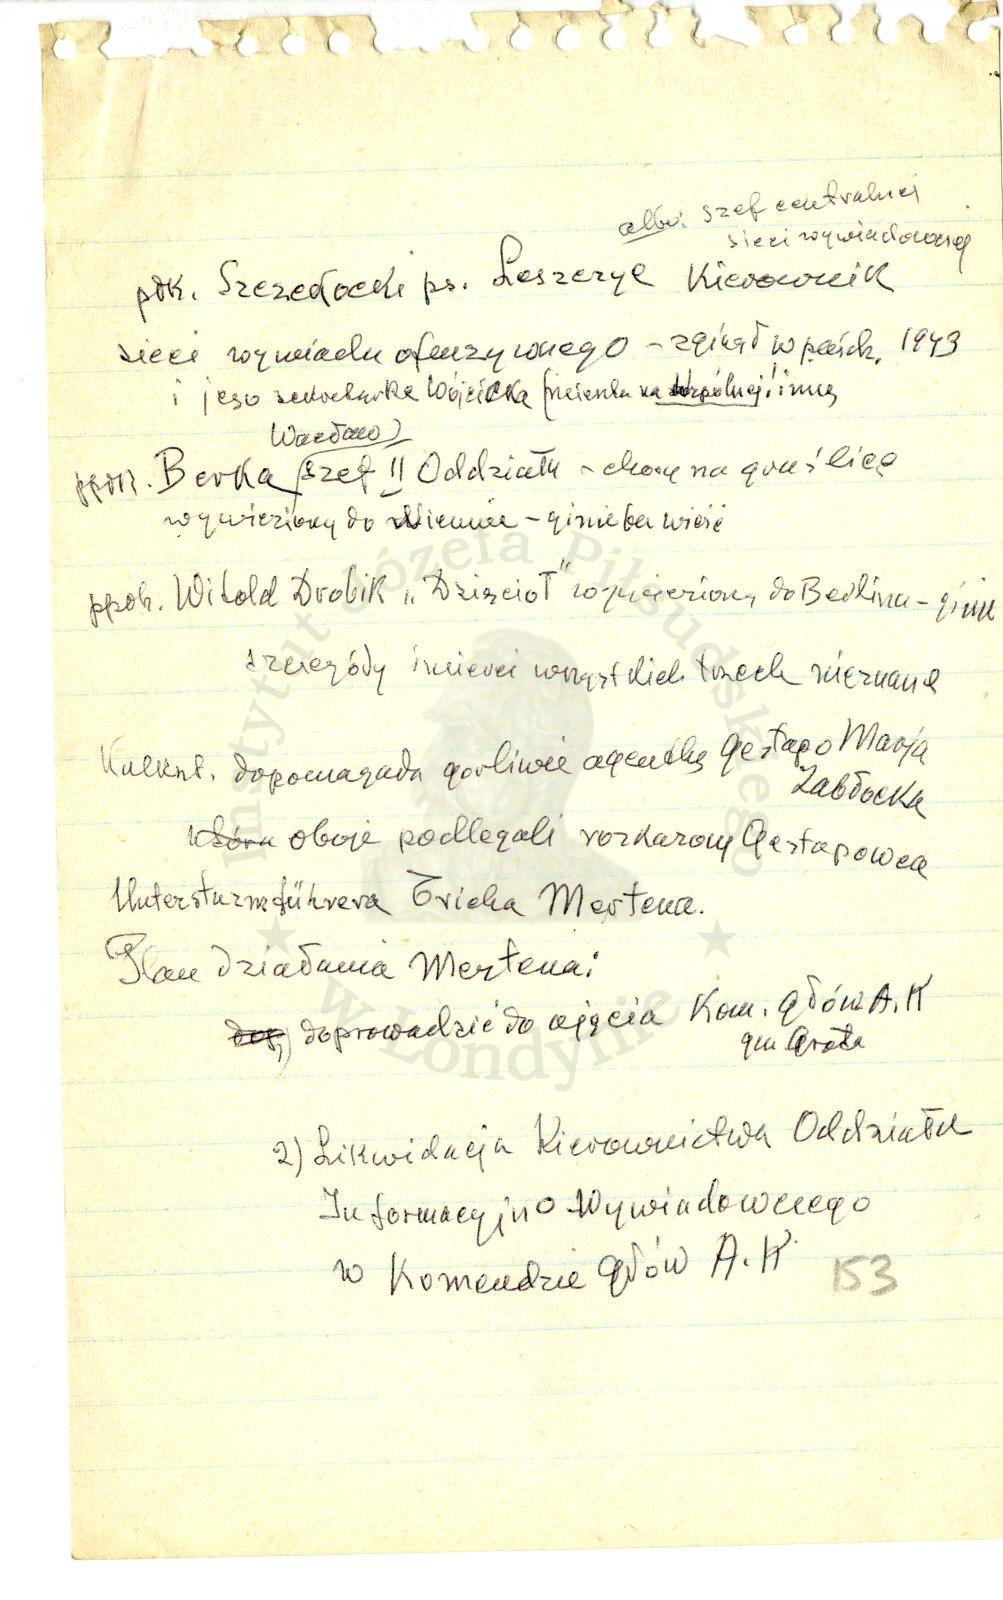 albo: szef centralnej
sieci wywiadowczej
płk. Szczedrocki ps. Leszczyc Kierownik
sieci wywiadu ofenzywnego – zginął w paźdź. 1943
i jego sekretarka Wójcicka na Wspólnej i inną
Wacław)
ppłk. Berka (szef II Oddziału – chory na gruźlicę
wywieziony do Niemiec – ginie bez wieść
ppłk. Witold Drobik „Dzięcioł" wywieziony do Berlina – ginie
szczegóły śmierci wszystkich trzech nieznane
Kalkst. dopomagała gorliwie agentka Gestapo Marja
Zabłocka
która oboje podlegali rozkazom Gestapowca
Untersturmführera Ericha Mertena.
Plan działania Mertena:
doprowadzić do ujęcia Kom. Głów A.K
gen Grota
2) Likwidacja Kierownictwa Oddziału
Informacyjno Wywiadowczego
w Komendzie Głów A.K.
153
Instytut Józefa Piłsudskiego
w Londynie